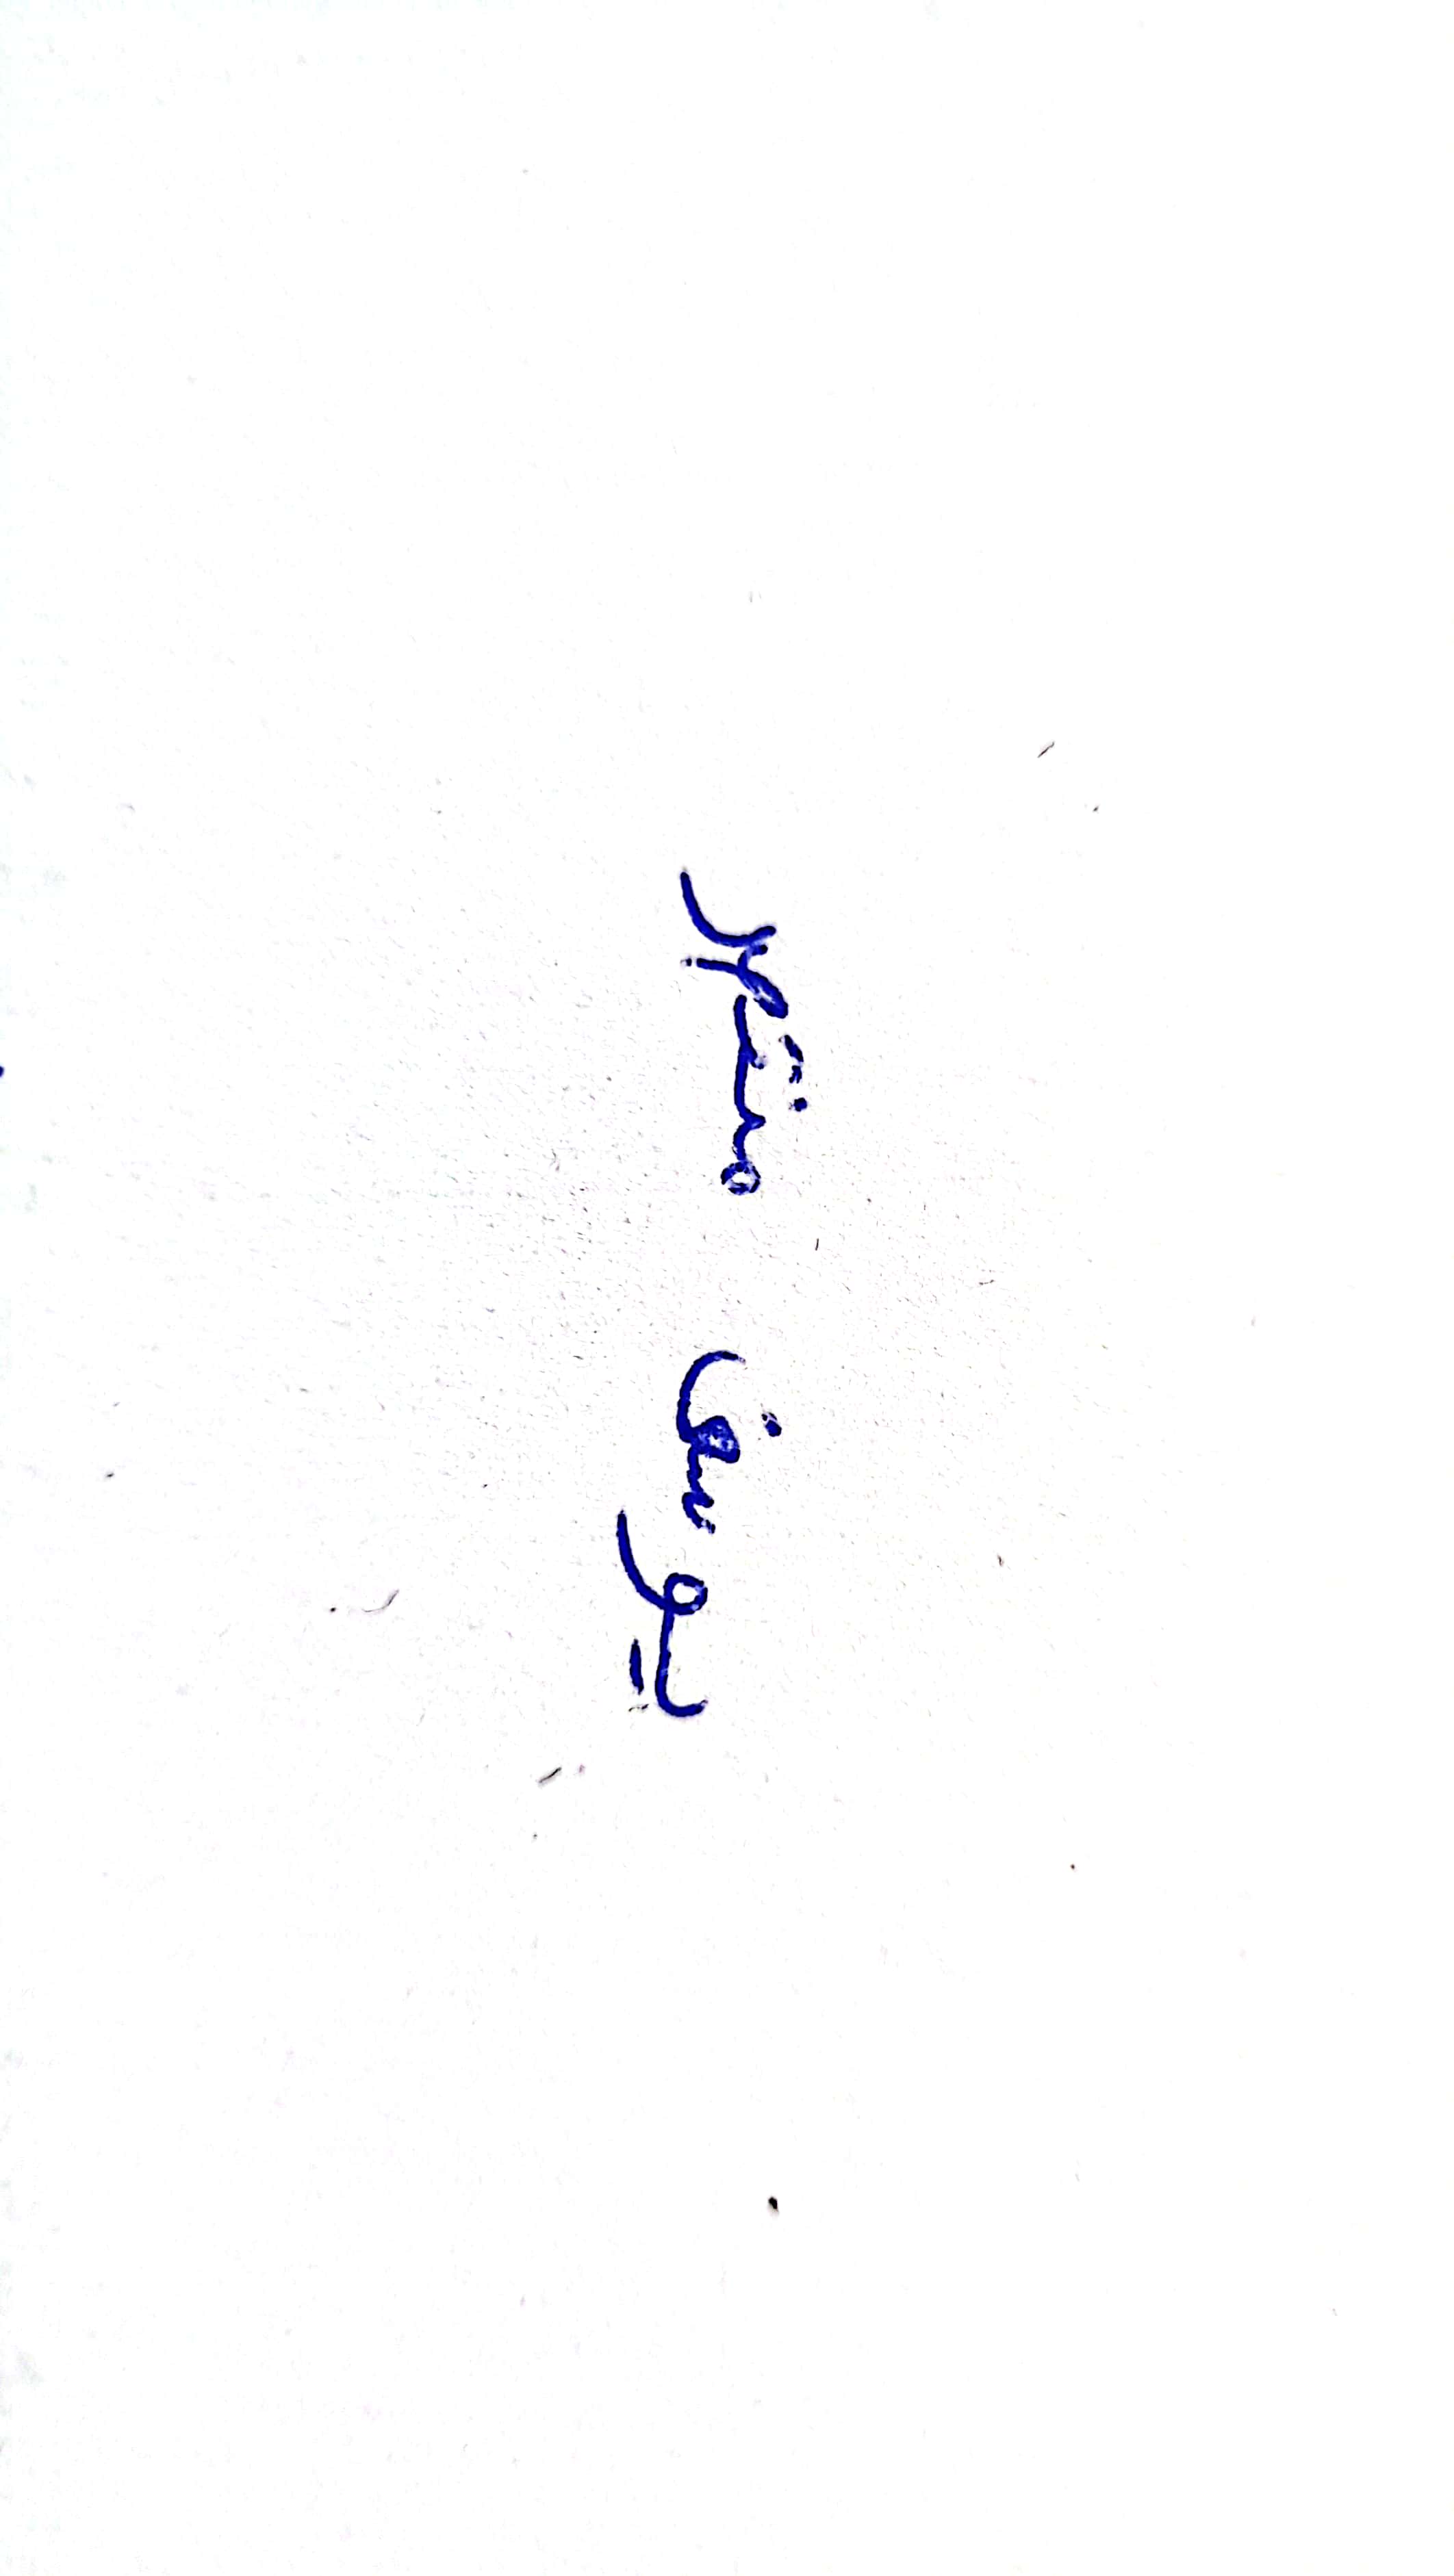 يوسف منتهر